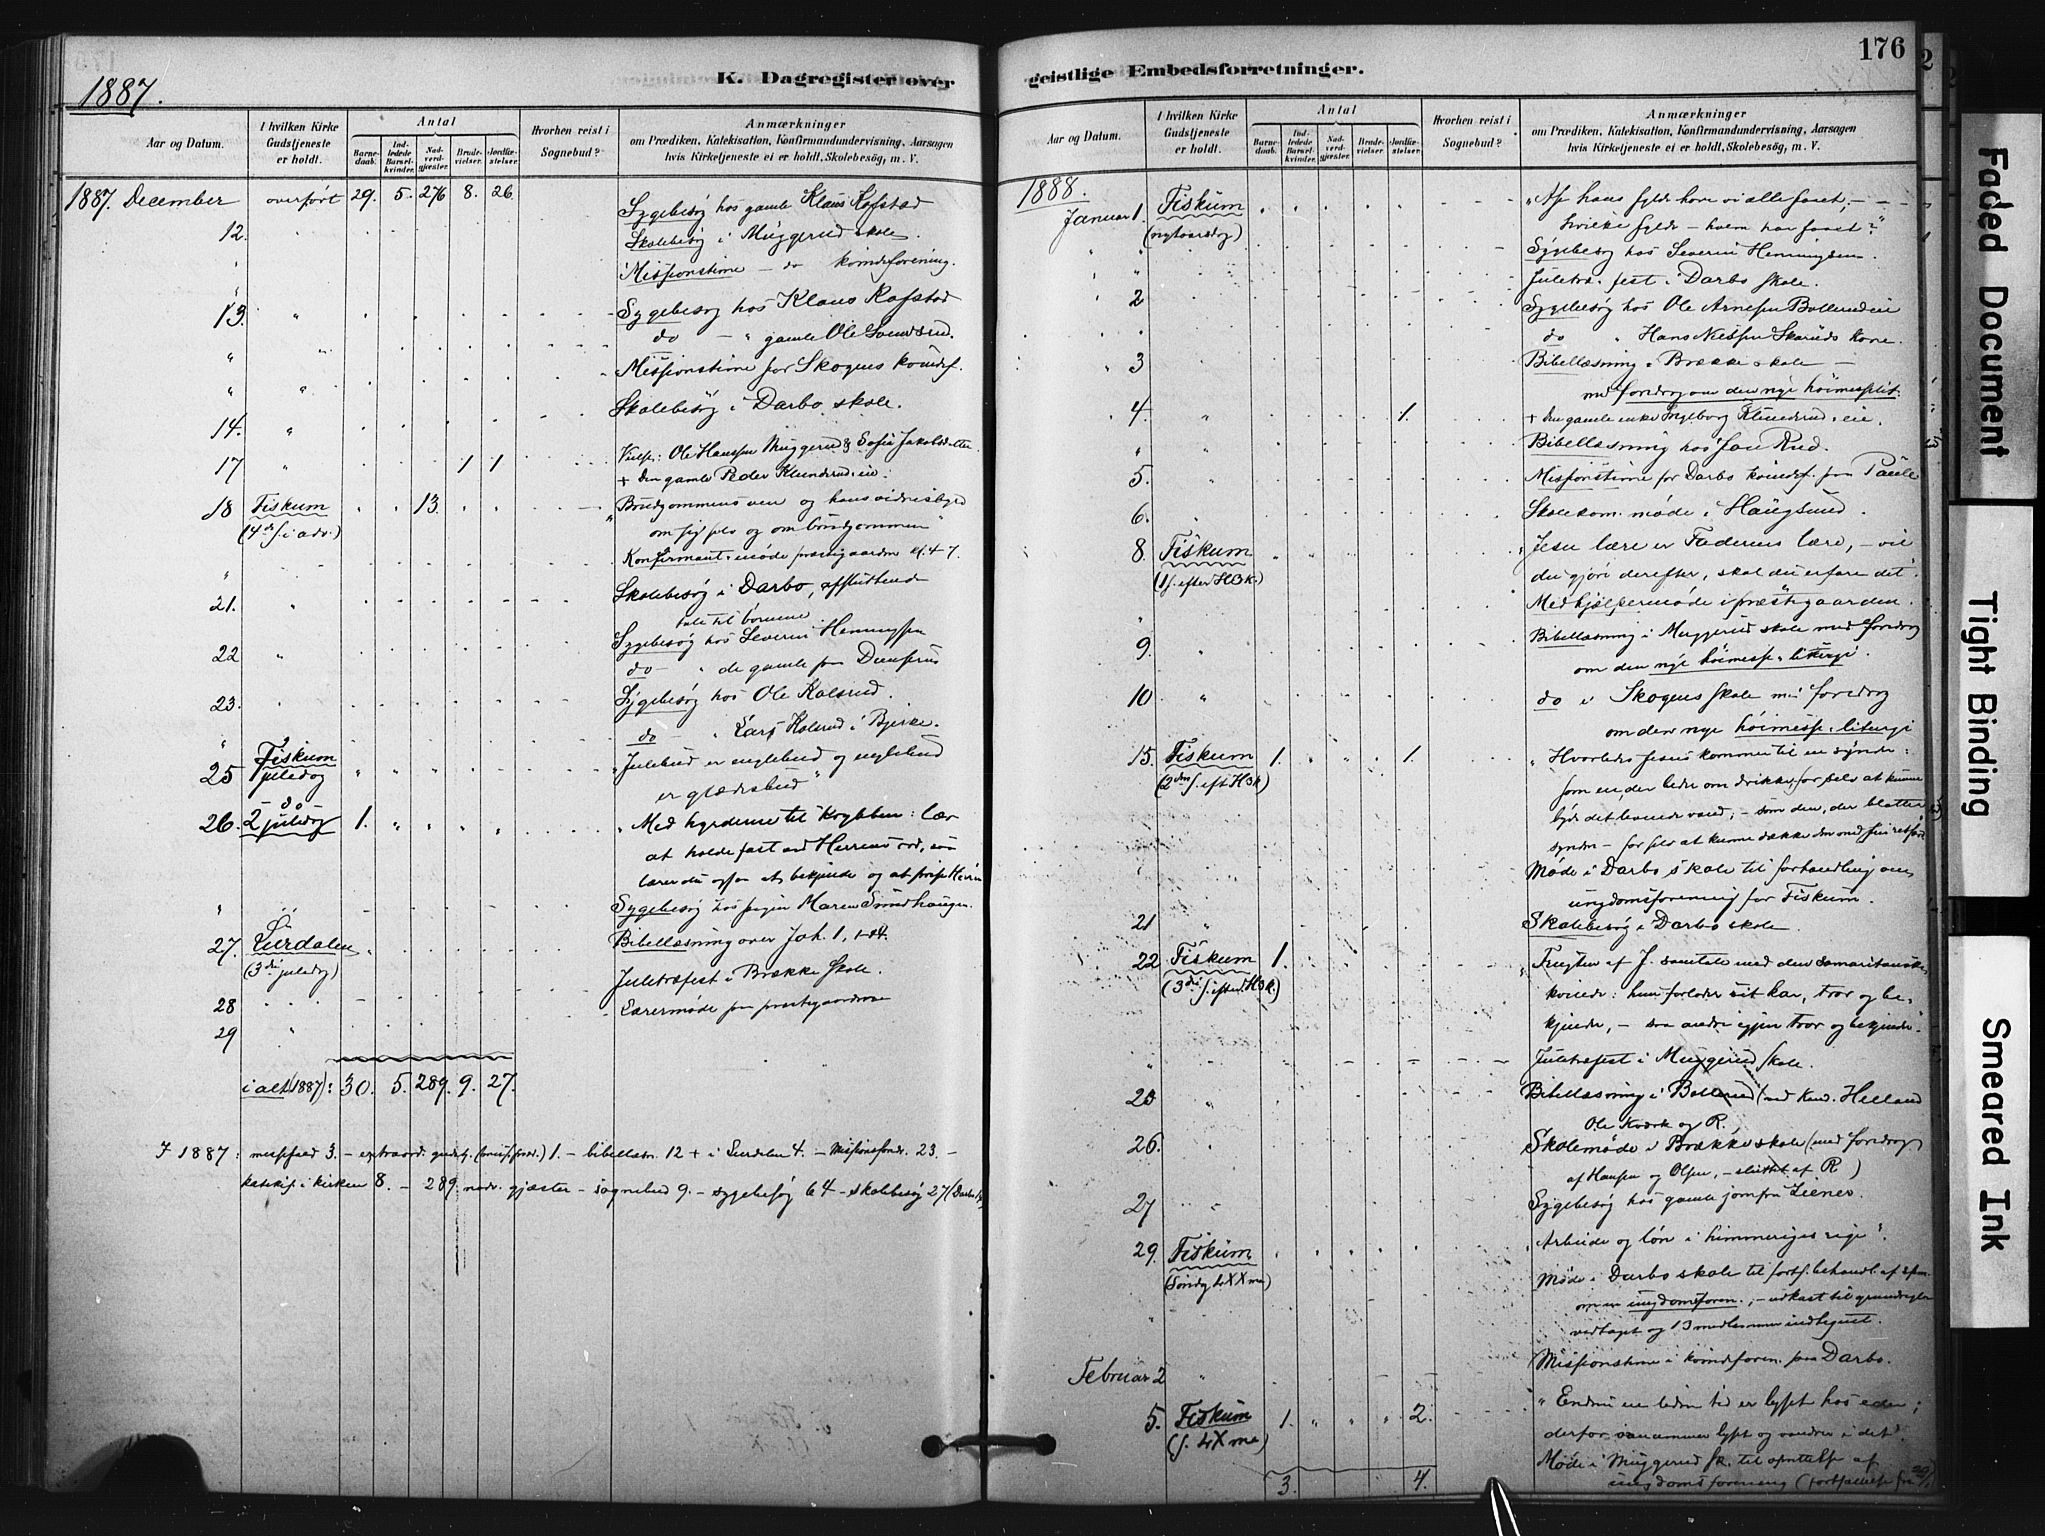 1887.
K. Dagregister over
Aar og Datum.
I hvilken Kirke Gudstjeneste er holdt.
Antal
Barnedaab.
Indledede Barselkvinder.
Nadverdgjæster.
Brudevielser.
Jordfæstelser.
Hvorhen reist i Sognebud?
Anmærkninger
om Prædiken, Katekisation, Konfirmandundervisning, Aarsagen
hvis Kirketjeneste ei er holdt, Skolebesøg, m. V.
1887. December overført 29. 5. 276 8. 26.
Sygebesøg hos gamle Klaus Rafstad
12. Skolebesøg i Muggerud skole.
Missionstime – do kvindeforening.
13. Sygebesøg hos Klaus Rafstad
do – " gamle Ole
Missionstime for Skogens kvindef.
Skolebesøg i Darbo skole.
14.
17 1 1 Vielse: Ole Hansen Muggerud & Sofie Jakobsdatter
+ den gamle Peder Klunderud-eie.
18 Fiskum 13. "Brudgommens ven og hans vidnesbyrd
(4de s. i adv.) om sig selv og om brudgommen"
Konfirmant-møde præstegaarden kl. 4-7.
21. Skolebesøg i Darbo, afsluttende
tale til børnene
22 Sygebesøg hos Severin Henningsen
do – " de gamle paa
23. Sygebesøg hos Ole Kolsrud.
do " Lars Kolsrud i Bjerke.
25 Fiskum juledag "Julebud er englebud og englebud
er glædesbud"
26. do 2 juledag 1. "Med hyrderne til Krybben: lær
at holde fast ved Herrens ord, saa
lærer du ogsaa at bekjende og at prise Herren
Sygebesøg hos pigen Maren
27. Lurdalen Bibellæsning over Joh. 1, 1-14.
(3die juledag) Juletræfest i Brække Skole.
28
29 Lærermøde paa præstegaarden
i alt (1887): 30. 5. 289. 9. 27.
I 1887: – extraord. gudstj. 1. – bibellæsn. 12 + i Lurdalen 4. – Missionsforedr. 23. –
katekis. i kirken 8. – 289 nadv. gjæster – sognebud 9. – sygebesøg 64 – skolebesøg 27
geistlige Embedsforretninger.
176
Aar og Datum.
I hvilken Kirke Gudstjeneste er holdt.
Antal
Barnedaab.
Indledede Barselkvinder.
Nadverdgjæster.
Brudevielser.
Jordfæstelser.
Hvorhen reist i Sognebud?
Anmærkninger
om Prædiken, Katekisation, Konfirmandundervisning, Aarsagen
hvis Kirketjeneste ei er holdt, Skolebesøg, m. V.
1888.
Januar 1. Fiskum "Af hans fylde have vi alle faaet, –
(nytaarsdag) hvilken fylde – hvem har faaet?"
Sygebesøg hos Severin Henningsen.
Juletræfest i Darbo Skole.
2 Sygebesøg hos Ole Arnesen Bollerudeie
do " Hans Nielsen Skaruds kone.
3 Bibellæsning i Brække skole –
med foredrag om den nye høimesselit.
4. 1. + den gamle enke Ingeborg Klunderud-eie.
Bibellæsning hos Jan Rud.
5. Missionstime for Darbo kvindef. paa
6. Skolekom. møde i Haugsund.
8. Fiskum "Jesu lære er Faderens lære, – vil
(1 s. efter H3k.) du gjøre derefter, skal du erfare det".
Medhjælpermøde i præstegaarden.
9. Bibellæsning i Muggerud skole med foredrag
om den nye høimesse-liturgi.
10 do i Skogens skole med foredrag
om den nye høimesse-liturgi
15. Fiskum 1. 1. "Hvorledes Jesus kommer til en synder:
(2den s. eft H3k) som en, der beder om drikke, for selv at kunne
byde det levende vand, – som den, der blotter
synden – for selv at kunne dække den med sin retfærd."
Møde i Darbo skole til forhandling om
ungdomsforening for Fiskum.
21 Skolebesøg i Darbo skole.
22 Fiskum 1. "Frugten af J. samtale med den samaritanske
(3die s. efter H3k.) kvinde: hun forlader sit kar, tror og be-
kjender, – saa andre igjen tror og bekjender".
Juletræfest i Muggerud skole.
Bibellæsning i Bollerud (ved Kand. Helland
Ole Kvark og R.
26. Skolemøde i Brække skole (med foredrag
af Hansen og Olsen, – sluttet af R)
27 Sygebesøg hos gamle jomfru Zeiner.
29. Fiskum "Arbeide og løn i himmeriges rige".
(Søndag LXX ma) Møde i Darbo skole til forts. behandl. af spm.
om en ungdomsforen., – udkast til grundregler
vedtaget og 13 medlemmer indtegnet.
Februar 2 Missionstime i kvindeforen. paa Darbo.
5. Fiskum 1. 2. "Endnu en liden tid er lyset hos eder;
(s. LX ma) derfor, vandrer i det".
Møde i Muggerud sk. til oprettelse af
ungdomsforening (fortsættelse fra 29/1
3. 4.
Faded Document
Tight Binding
Smeared Ink